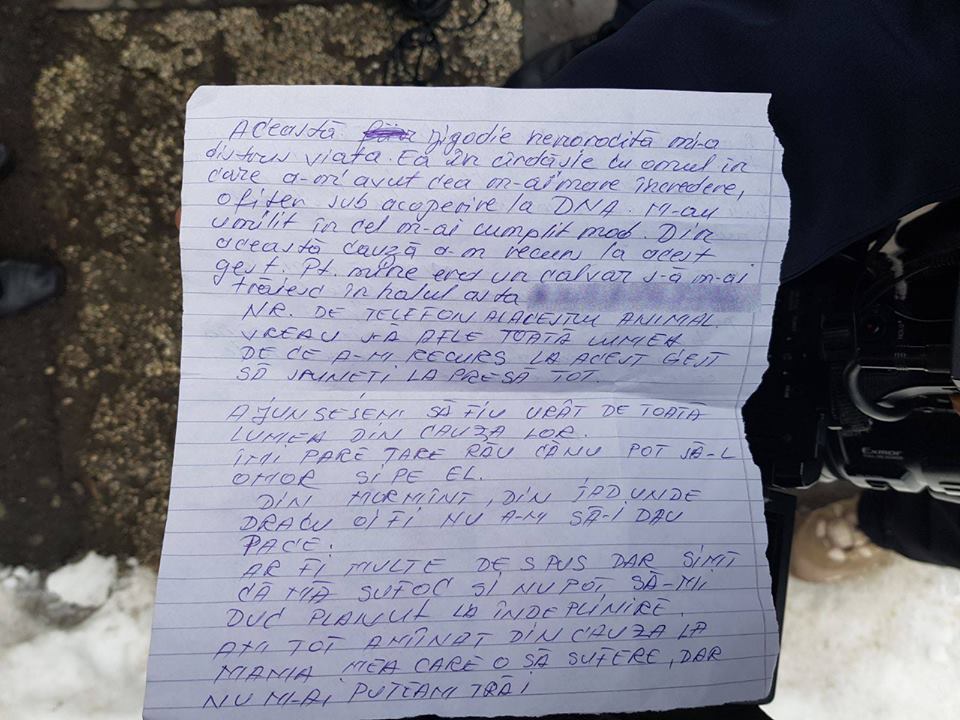 Această jigodie nenorocită mi-a
distrus viata. Ea în cîrdășie cu omul in
care a-mi avut cea m-ai mare încredere,
ofiter sub acoperire la DNA. M-au
umilit în cel m-ai cumplit mod. Din
această cauză a-m recurs la acest
gest. Pt. mine era un calvar s-ă m-ai
trăiesc în halul asta
NR. DE TELEFON ALACESTUI ANIMAL.
VREAU S-Ă AFLE TOATĂ LUMEA
DE CE A-MI RECURS LA ACEST GEST
SĂ SPUNETI LA PRESĂ TOT.
AJUNSESEMI SĂ FIU URÂT DE TOATĂ
LUMEA DIN CAUZA LOR.
ÎMI PARE TARE RĂU CĂ NU POT SĂ-L
OMOR SI PE EL.
DIN MORMÎNT, DIN IAD UNDE
DRACU OI FI NU A-M SĂ-I DAU
PACE.
AR FI MULTE DE SPUS DAR SIMT
CĂ MĂ SUFOC SI NU POT SĂ-MI
DUC PLANUL LA ÎNDEPLINIRE.
AMI TOT AMÎNAT DIN CAUZA LA
MAMA MEA CARE O SĂ SUFERE, DAR
NU MI-AI PUTEAMI TRĂI
Exmor